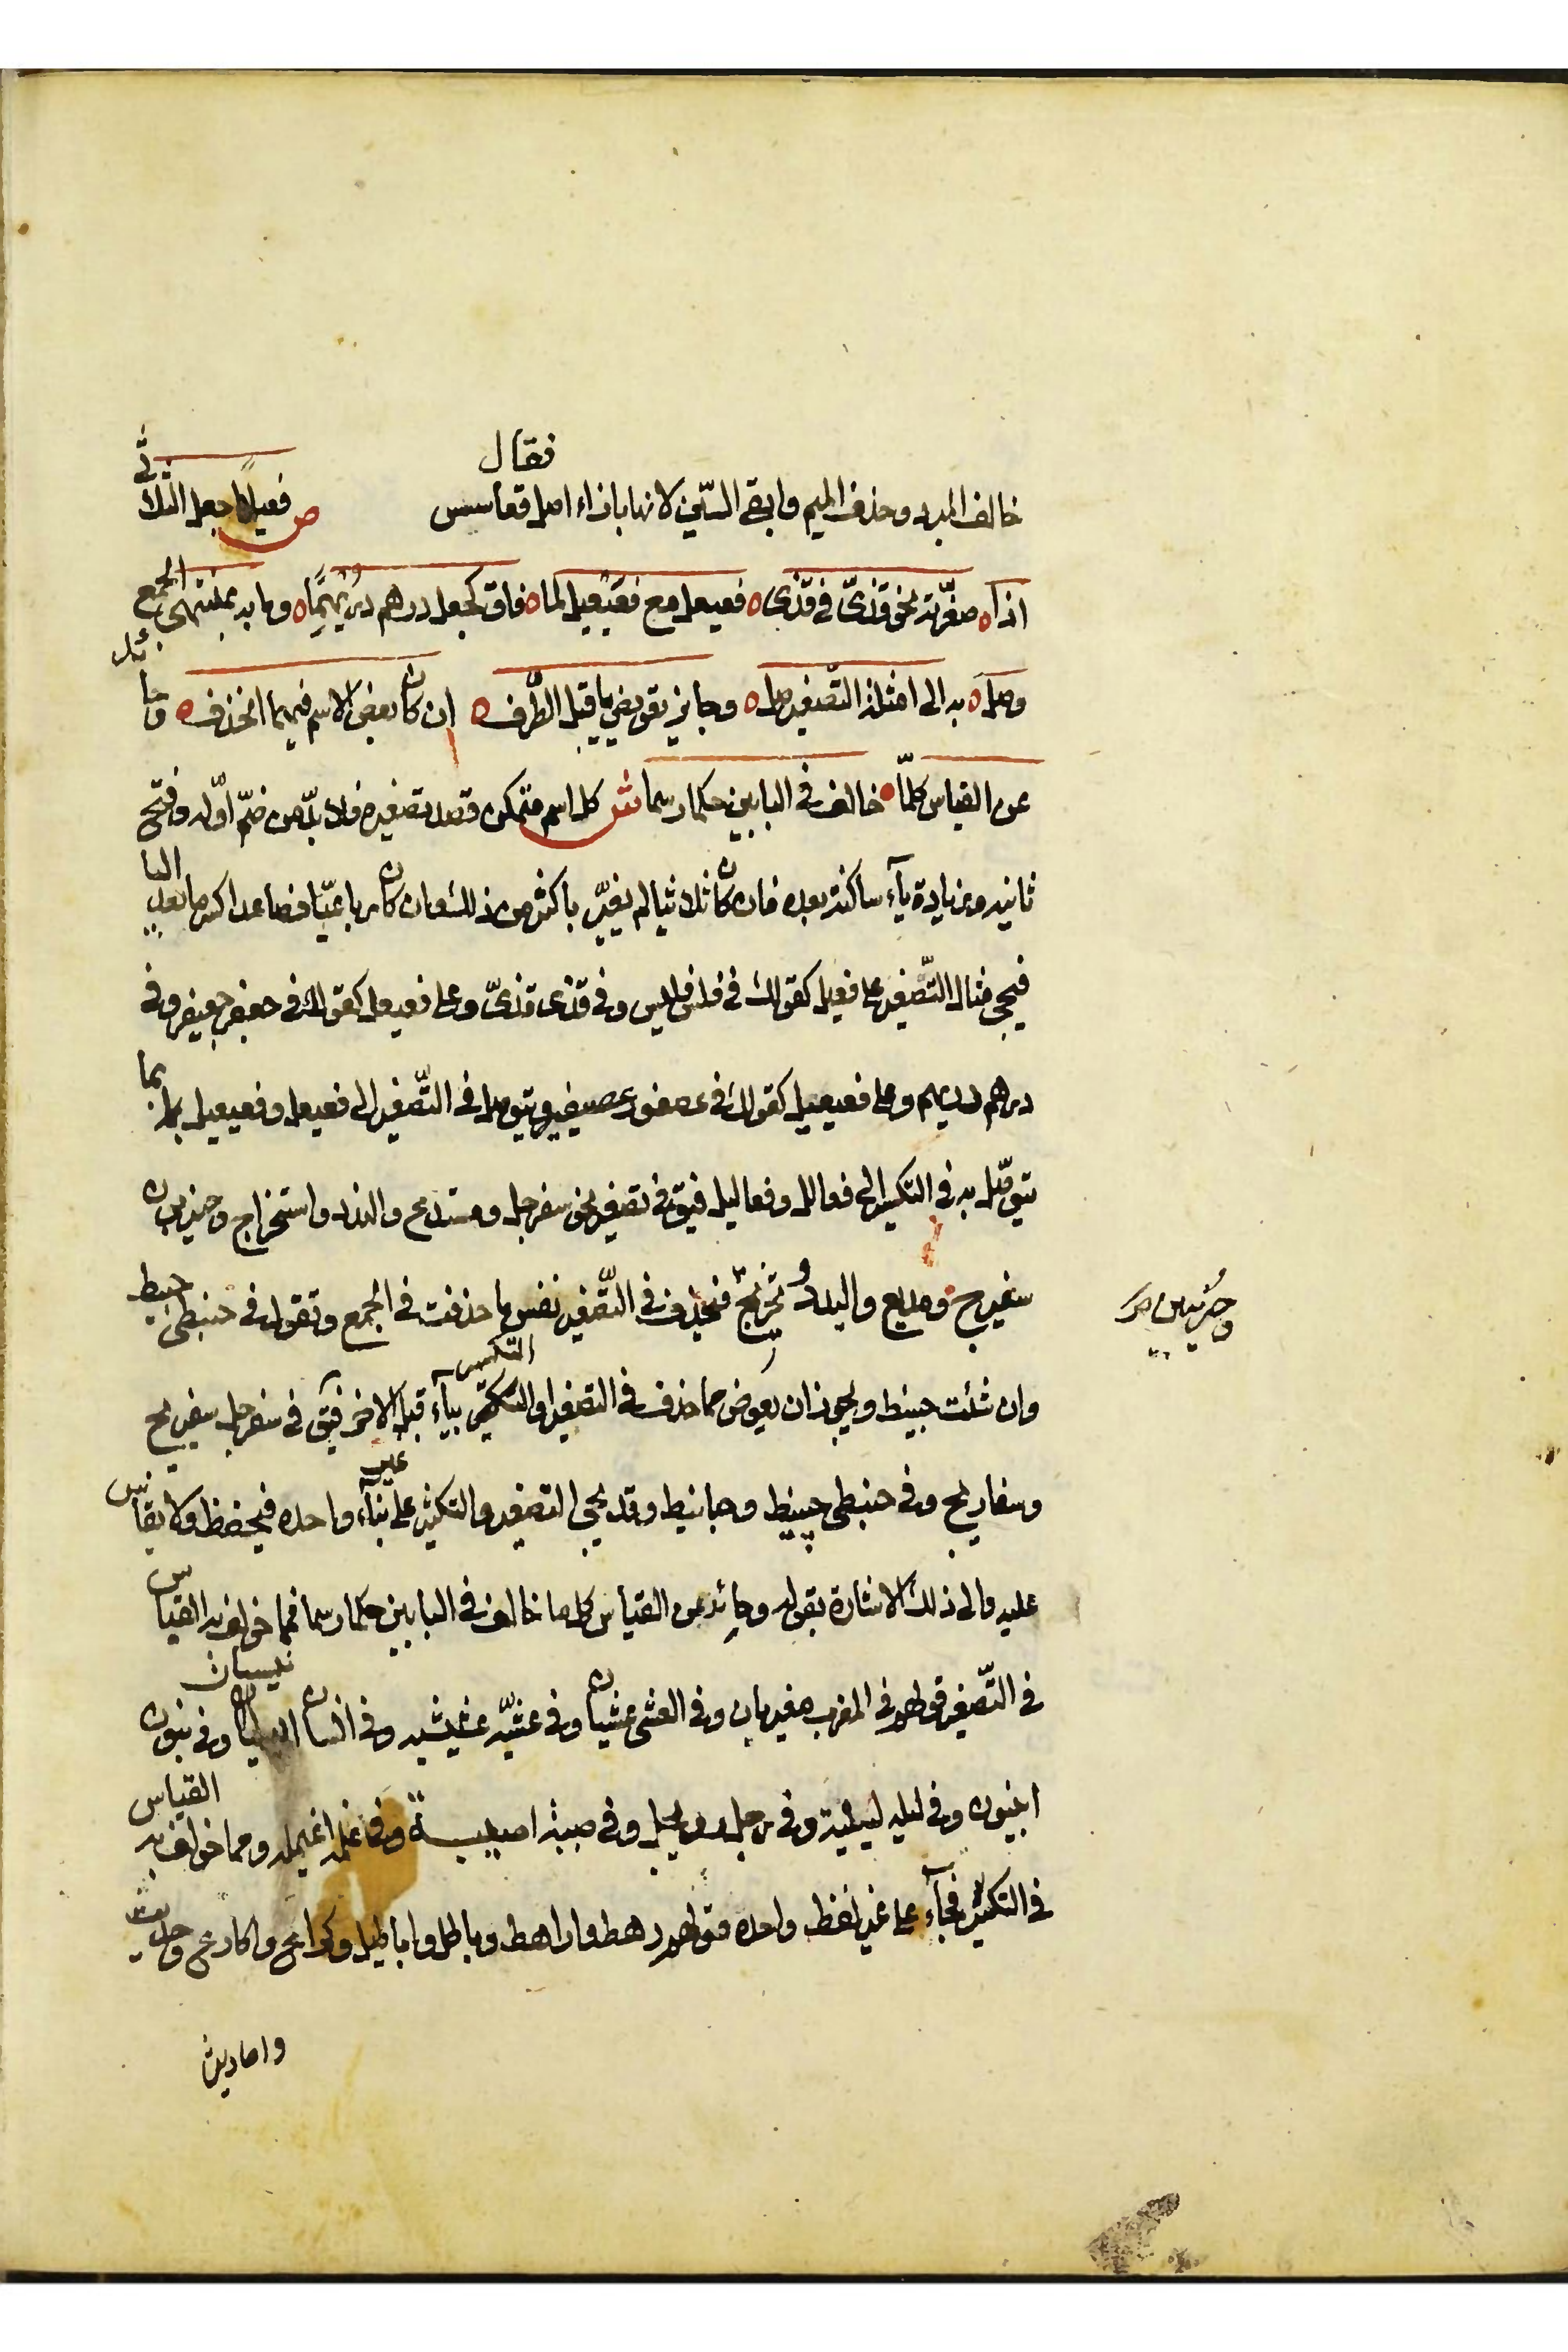 خالف المبرد وحذف الميم وابقى السّين لانها بازاء اصل فقال قعاسس ص فعيلا اجعل الثلاثيّ
اذا ه صغّرته نحو قذىّ فى قذى ه فعيعل مع فعيعيل لما ه فاق كجعل درهم دريهما ه وما به لمنتهى الجمع
وصل ه به الى امثلة التّصغير صل ه وجايز تعويض يا قبل الطّرف ه ان كان بعض الاسم فيهما انحذف ه وحائد
عن القياس كلمّا ه خالف فى البابين حكما رسما ش كل اسم متمكن قصد تصغيره فلا بدّ من ضمّ اوّله وفتح
ثانيه وزيادة يآء ساكنة بعده فان كان ثلاثيا لم يغيّر باكثر من ذلك وان كان رباعيّا فصاعدا كسر ما بعد اليا
فيجى مثال التّصغير على فعيل كقولك فى فلس فليس وفى قذى قذىّ وعلى فعيعل كقولك فى جعفر جعيفر وفى
درهم دريهم وعلى فعيعيل كقولك فى عصفور عصيفير ويتوصل فى التّصغير الى فعيعل وفعيعيل بما
يتوصّل به فى التكسير الى فعالل وفعاليل فيق فى تصغير نحو سفرجل ومستدع والندد واستخراج وحيزبون
سفيرج ومديع واليدد وتخريج فتحذف فى التّصغير نفس ما حذفت فى الجمع وتقول فى حبنطى حبيط
وحزيبين صح
وان شئت حبينط ويجوز ان يعوض مما حذف فى التصغير او التكسير بيآء قبل الاخر فيق فى سفرجل سفيريج
وسفاريج وفى حبنطى حبينيط وحبانيط وقد يجى التصغير والتكثير على غير بنآء واحده فيحفظ ولا يقاس
عليه والى ذلك الاشارة بقوله وحائد عن القياس كل ما خالف فى البابين حكما رسما فمما خولف به القياس
فى التّصغير قولهم فى المغرب مغيربان وفى العشى عشيان وفى عشيّه عشيشيه وفى انسان انيسيان وفى بنون
ابينون وفى ليله لييلية وفى رجل رويجل وفى صبية اصيبية وفى غلمه اغيلمه ومما خولف به القياس
فى التكثير فجآء على غير لفظ واحده قولهم رهط واراهط وباطل واباطيل وكراع واكارع وحديث
واحاديث